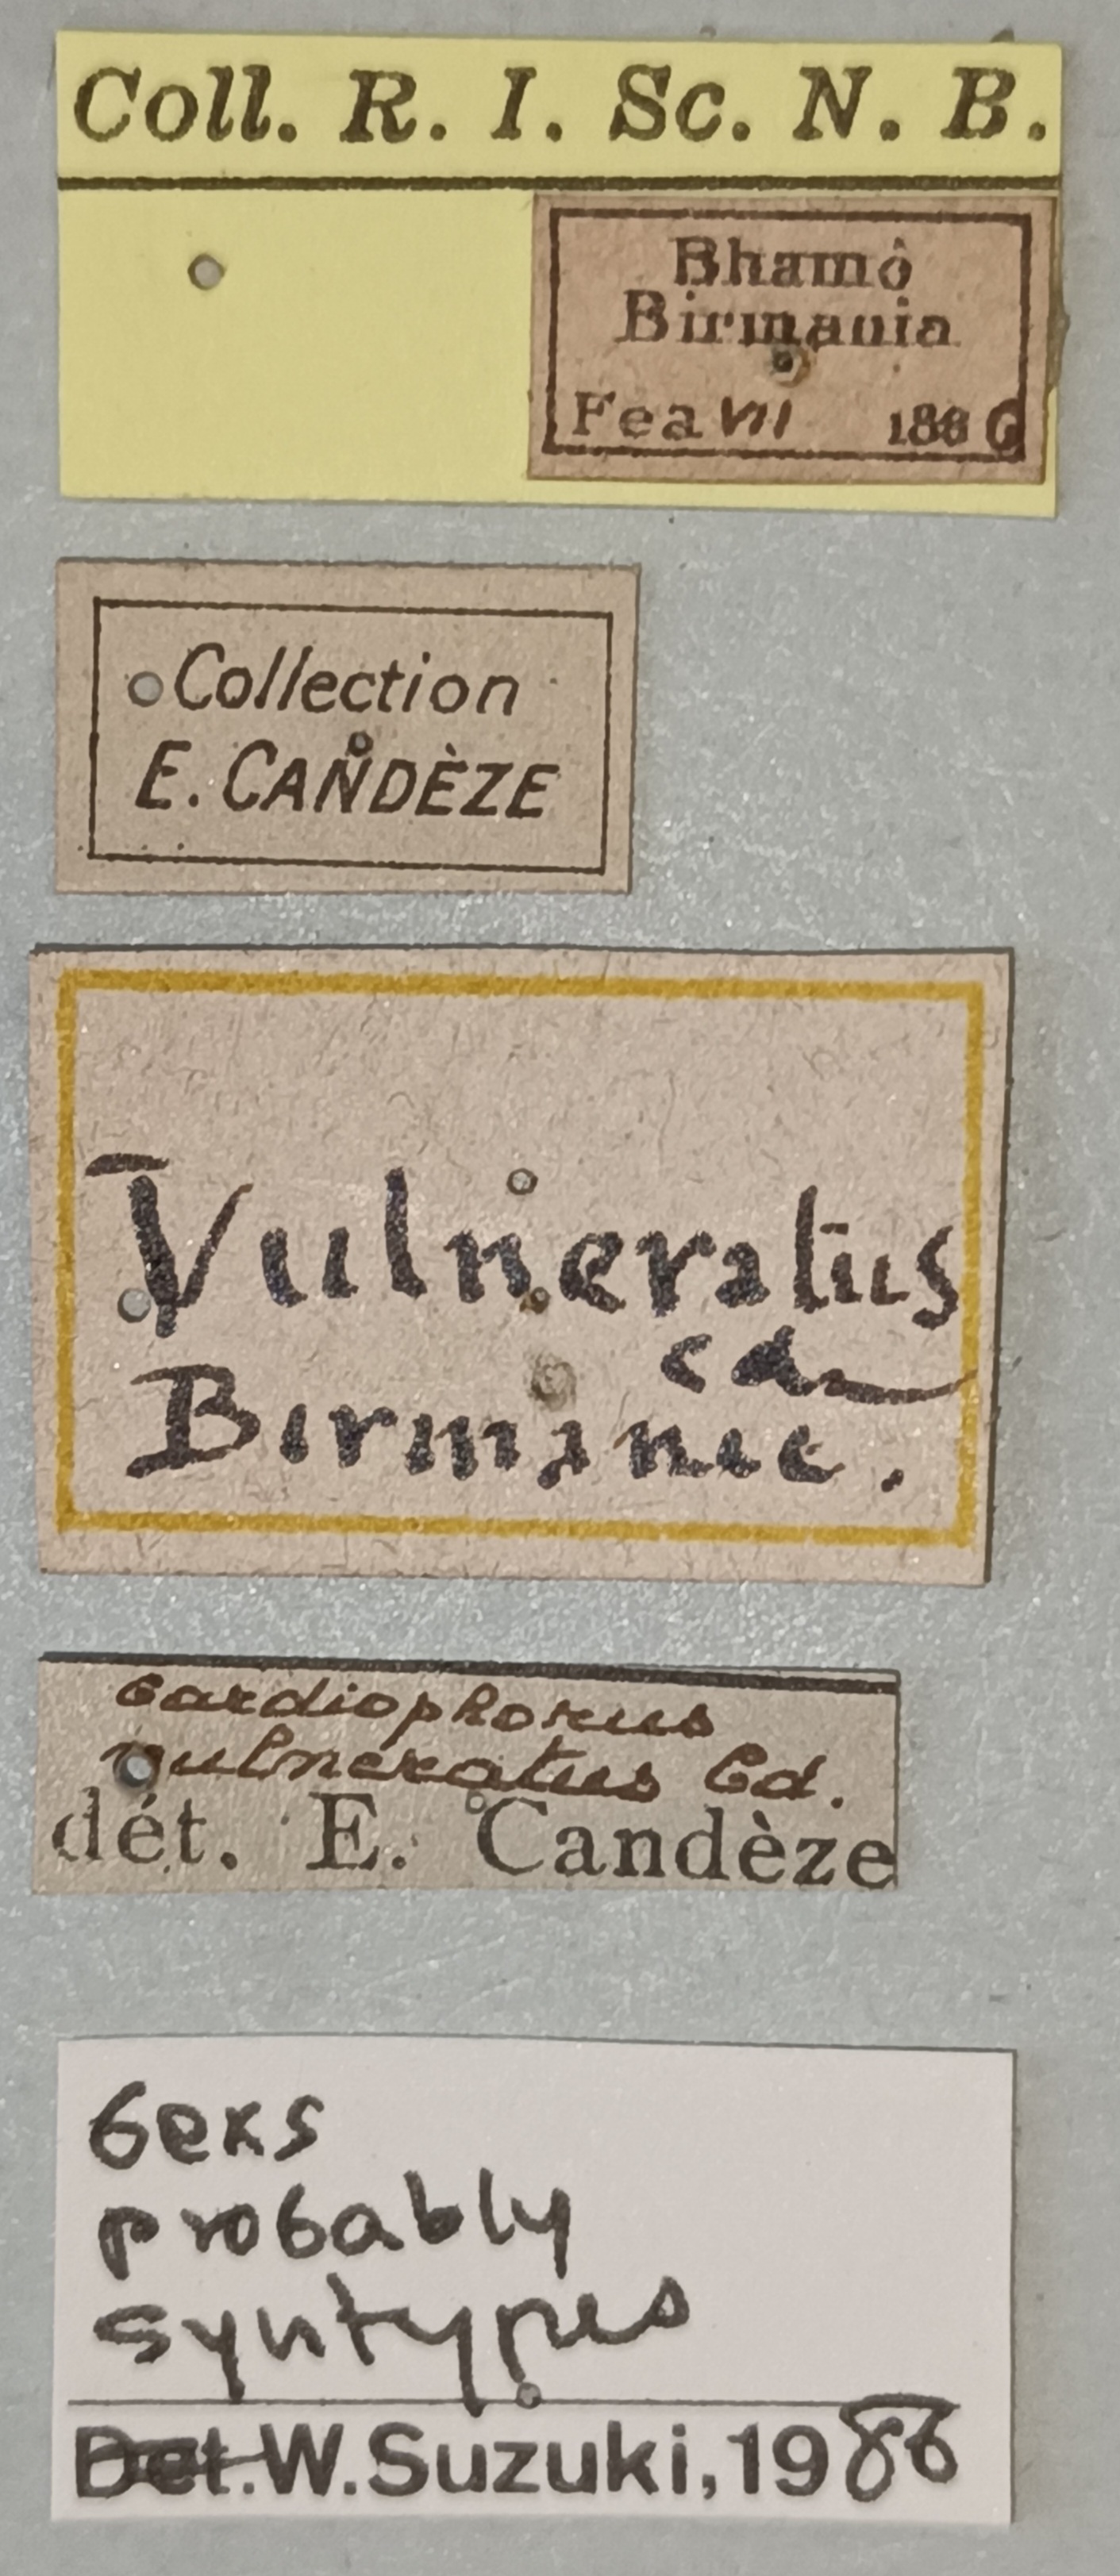 Coll. R. I. Sc. N. B.
Bhamò
Birmania
Fea VII 1886
Collection
E. CANDÈZE
Vulneratus
cd
Birmanie.
Cardiophorus
vulneratus Cd.
dét. E. Candèze
6 exs
probably
syntypes
Det. W. Suzuki, 1986